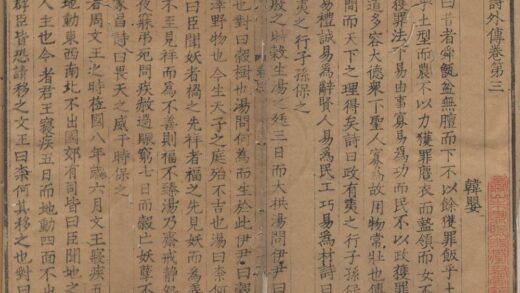 詩外傳卷第三
韓嬰
曰昔者舜甑盆無膻而下不以餘獲罪飯乎
乎土型而農不以力獲罪麑衣而盭領而女不
獲罪法下易由事寡易為功而民不以政獲罪
道多容大德衆下聖人寡為故用物常壯也傳
間而天下之理得矣詩曰政有夷之行子孫保
易禮誠易為辭賢人易為民工巧易為材詩曰
夷之行子孫保之
殷之時穀生湯之廷三日而大拱湯問伊尹曰
也對曰穀樹也湯問何為而生於此伊尹曰穀
澤野物也今生天子之庭殆不吉也湯曰柰何
曰臣聞妖者禍之先祥者福之先見妖而為善
不至見祥而為不善則福不臻湯乃齋戒靜處
夜寐弔死問疾赦過賑窮七日而穀亡妖孽不
家昌詩曰畏天之威于時保之
者周文王之時莅國八年歲六月文王寢疾五
地動東西南北不出國郊有司皆曰臣聞地之
人主也今者君王寢疾五日而地動四面不出
群臣皆恐請移之文王曰柰何其移之也對曰